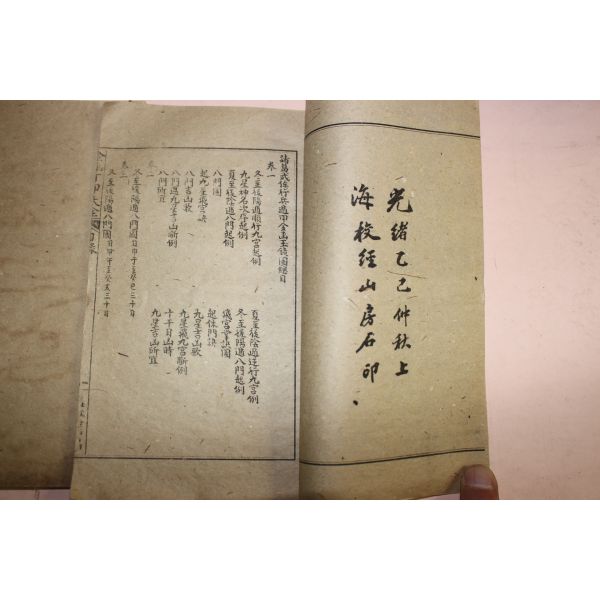 光緒乙巳仲秋上
海校經山房石印
諸葛武侯行兵遁甲金函玉鏡圖總目
卷一
冬至後陽遁順行九宮起例
夏至後陰遁逆行九宮例
九星神名次序起例
冬至後陽遁八門起例
夏至後陰遁八門起例
飛宮掌訣圖
起九星飛宮訣
起休門訣
八門圖
九星吉凶歌
八門吉凶歌
九星飛九宮斷例
八門遇九星吉凶斷例
十干日凶時
八門所宜
九星吉凶所宜
冬至後陽遁八門圖自甲子至癸巳三十日
卷三
冬至後陽遁八門圖自甲午至癸亥三十日